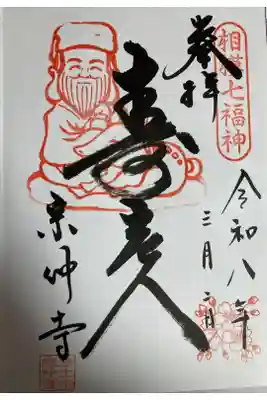 相模七福神
奉拝
令和八年
三月二日
寿老人
宗仲寺